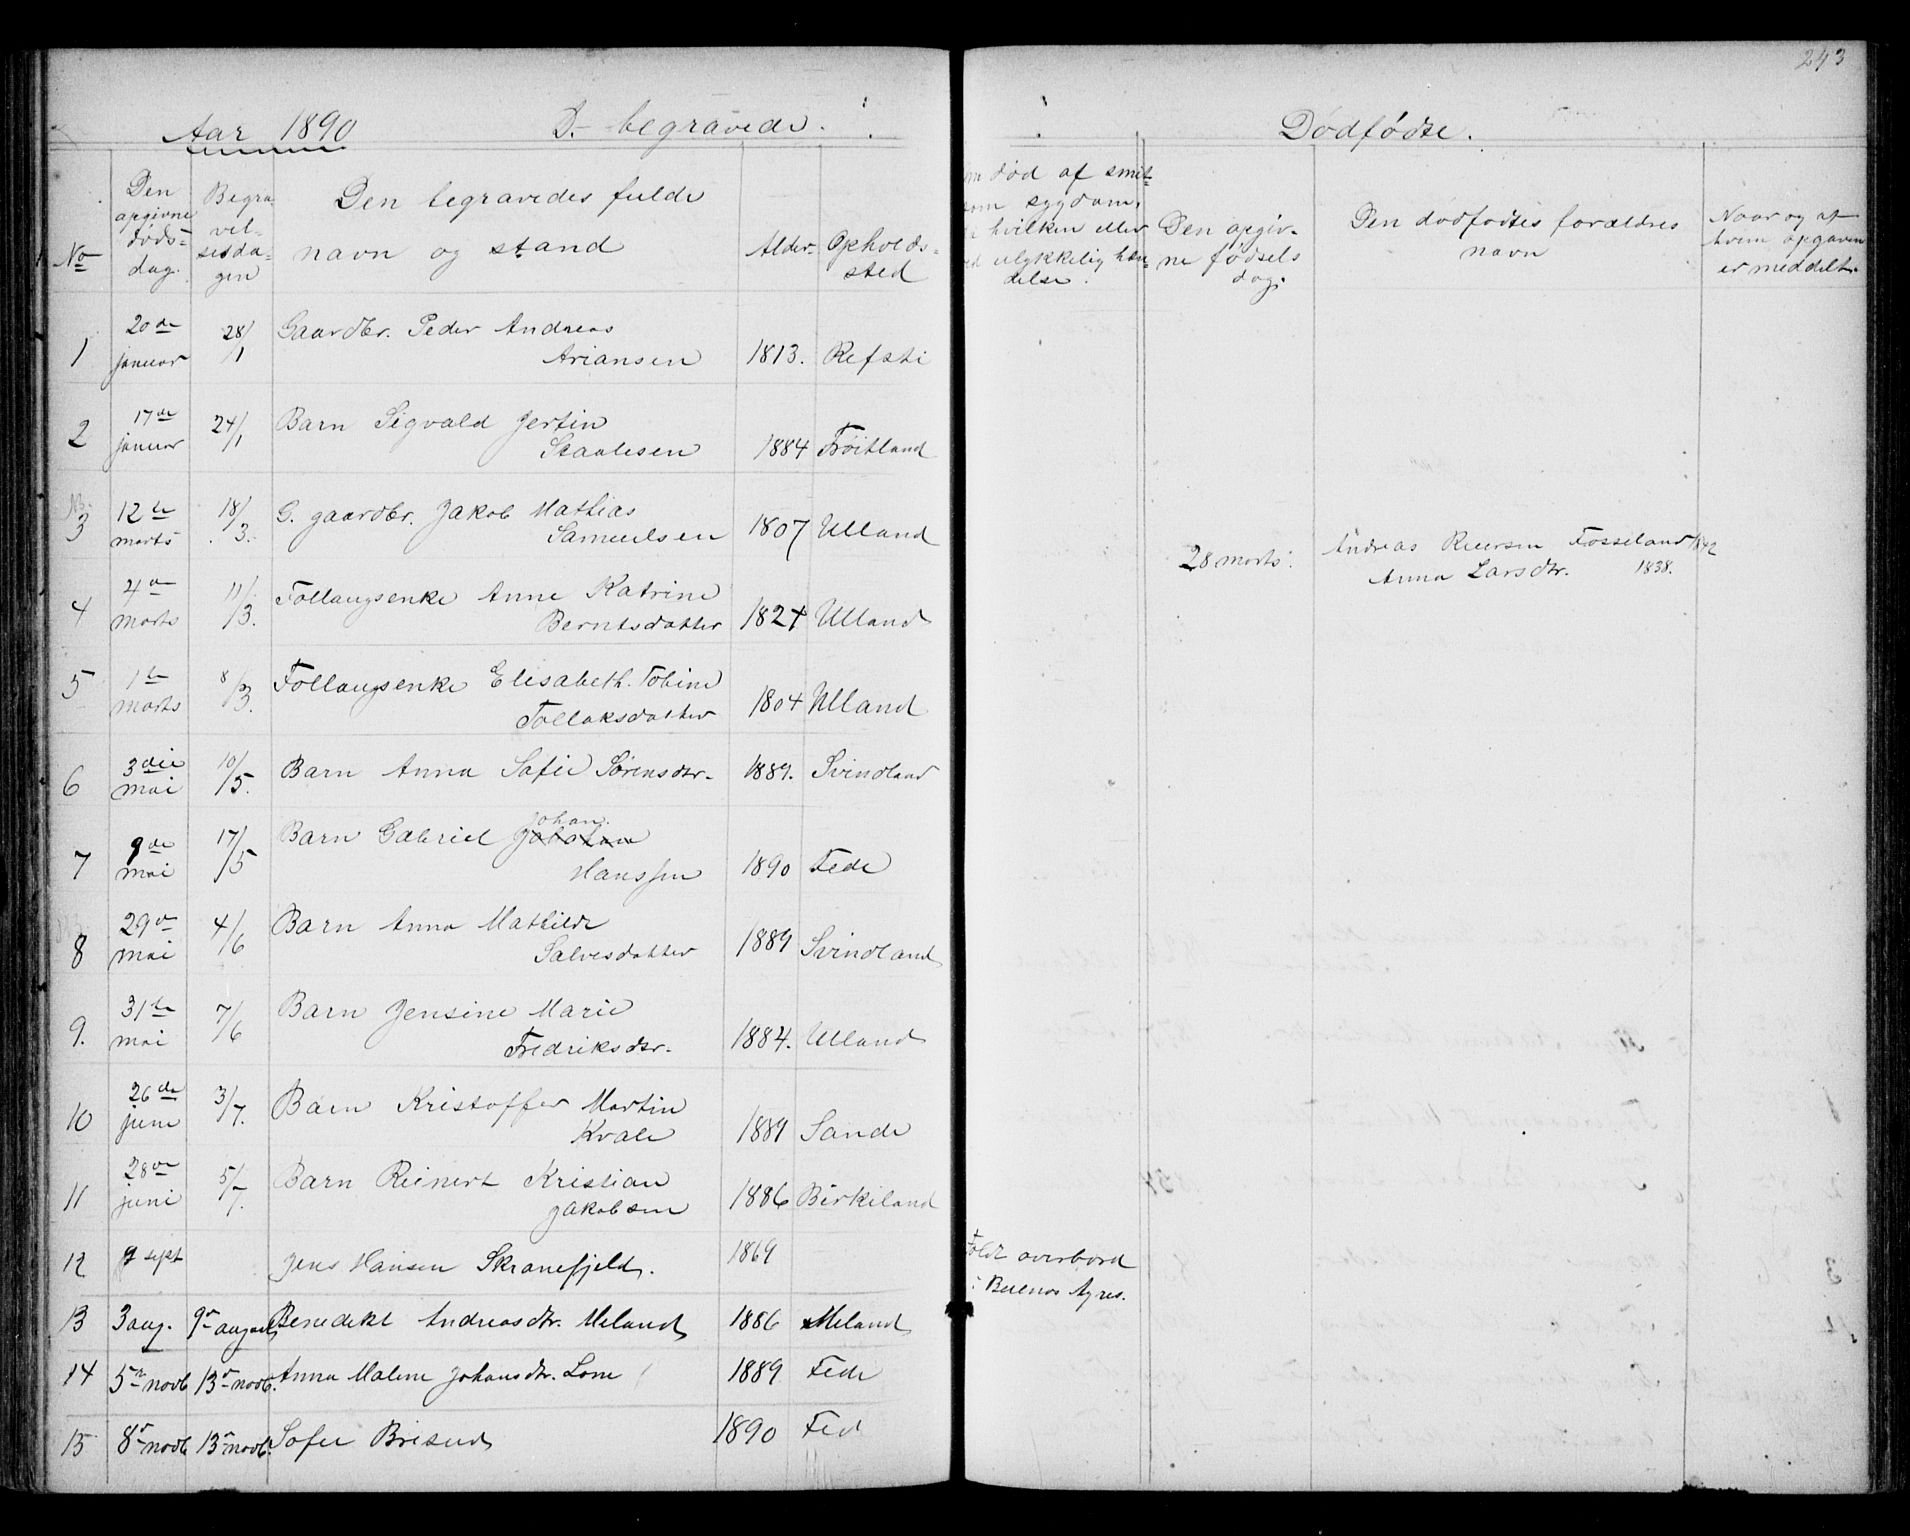 243
Aar 1890 D. begravede.
Dødfødte.
No
Den opgivne døds-dag.
Begravelsesdagen
Den begravedes fulde navn og stand
Alder
Opholds-sted
død af smit-
som sygdom,
hvilken eller
ulykkelig hæn-
delse.
Den opgiv-
ne fødsels
dag.
Den dødfødtes forældres
navn
Naar og at
hvem opgaven
er meddelt.
1 20de januar 28/1 Gaardbr. Peder Andreas
Ariansen 1813. Refsti
2 17de januar 24/1 Barn Sigvald Jertin
Staalesen 1884 Frøitland
3 12te marts 18/3. G. gaardbr. Jakob Mathias
Samuelsen 1807 Ulland
28 marts. Andreas Reiersen Fosseland 1842
Anna Larsdtr. 1838.
4 4de marts 11/3. Follaugsenke Anne Katrine
Berntsdatter 1824 Ulland
5 1te marts 8/3. Follaugsenke Elisabeth Tobine
Tollaksdatter 1804 Ulland
6 3die mai 10/5. Barn Anna Sofie Sørensdtr. 1889. Svindland
7 9de mai 17/5 Barn Gabriel Johan.
Hanssen 1890 Fede
8 29de mai 4/6 Barn Anna Mathilde
Salvesdatter 1889 Svindland
9. 31te mai 7/6 Barn Jensine Marie
Fredriksdtr. 1884. Ulland
10 26de juni 3/7. Barn Kristoffer Martin
Kvale 1889 Sande
11 28de juni 5/7. Barn Reinert Kristian
Jakobsen 1886 Birkeland
12 9 sept Jens Hansen Skranefjeld. 1869
Faldt overbord
i Buenos Ayres.
13 3 aug. 9de august Benedikt Andreasdtr. Meland 1886 Meland
14 5te novb 13de novb. Anna Malene Johansdtr. Lone 1889 Fede
15 8de novb 13de novb. Sofie Brisund 1890 Fed